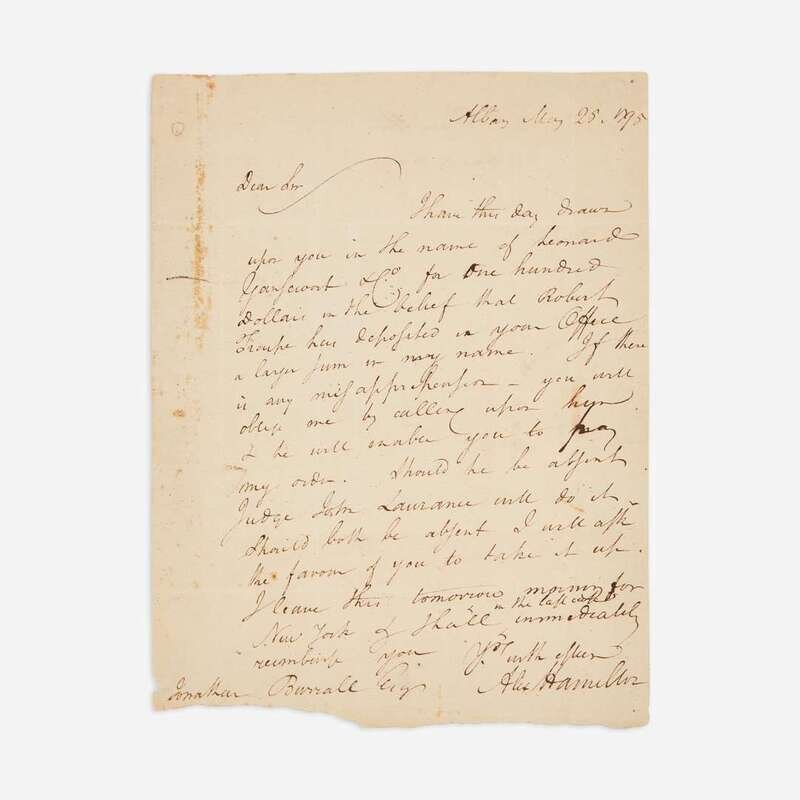 Albany May 25. 1795
Dear Sir
I have this day drawn
upon you in the name of Leonard
Gansevort & Co for One hundred
Dollars in the belief that Robert
Troupe has deposited in your Office
a larger sum in my name. If there
is any misapprehension – you will
oblige me by calling upon him
& he will enable you to pay
my order. Should he be absent
Judge John Laurance will do it
Should both be absent I will ask
the favour of you to take it up.
I leave this tomorrow morning for
New York & shall in the last case immediately
reimburse you Yrs with esteem
Jonathan Burrall Esqr Alex Hamilton